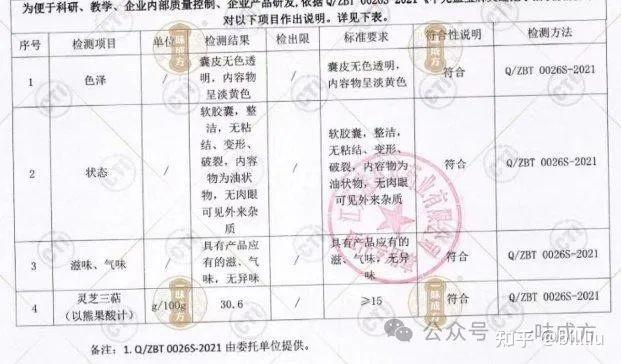 为便于科研、教学、企业内部质量控制、企业产品研发,依据Q/ZBT 0026S-2021
对以下项目作出说明。详见下表。
序号 检测项目 单位 检测结果 检出限 标准要求 符合性说明 检测方法
1 色泽 / 囊皮无色透明,内容物呈淡黄色 / 囊皮无色透明,内容物呈淡黄色 符合 Q/ZBT 0026S-2021
2 状态 / 软胶囊,整洁,无粘结、变形、破裂,内容物为油状物,无肉眼可见外来杂质 / 软胶囊,整洁,无粘结、变形、破裂,内容物为油状物,无肉眼可见外来杂质 符合 Q/ZBT 0026S-2021
3 滋味、气味 / 具有产品应有的滋、气味,无异味 / 具有产品应有的滋、气味,无异味 符合 Q/ZBT 0026S-2021
4 灵芝三萜(以熊果酸计) g/100g 30.6 / ≥15 符合 Q/ZBT 0026S-2021
备注:1. Q/ZBT 0026S-2021 由委托单位提供。
公众号 一味成方
知乎
一味成方
CTI